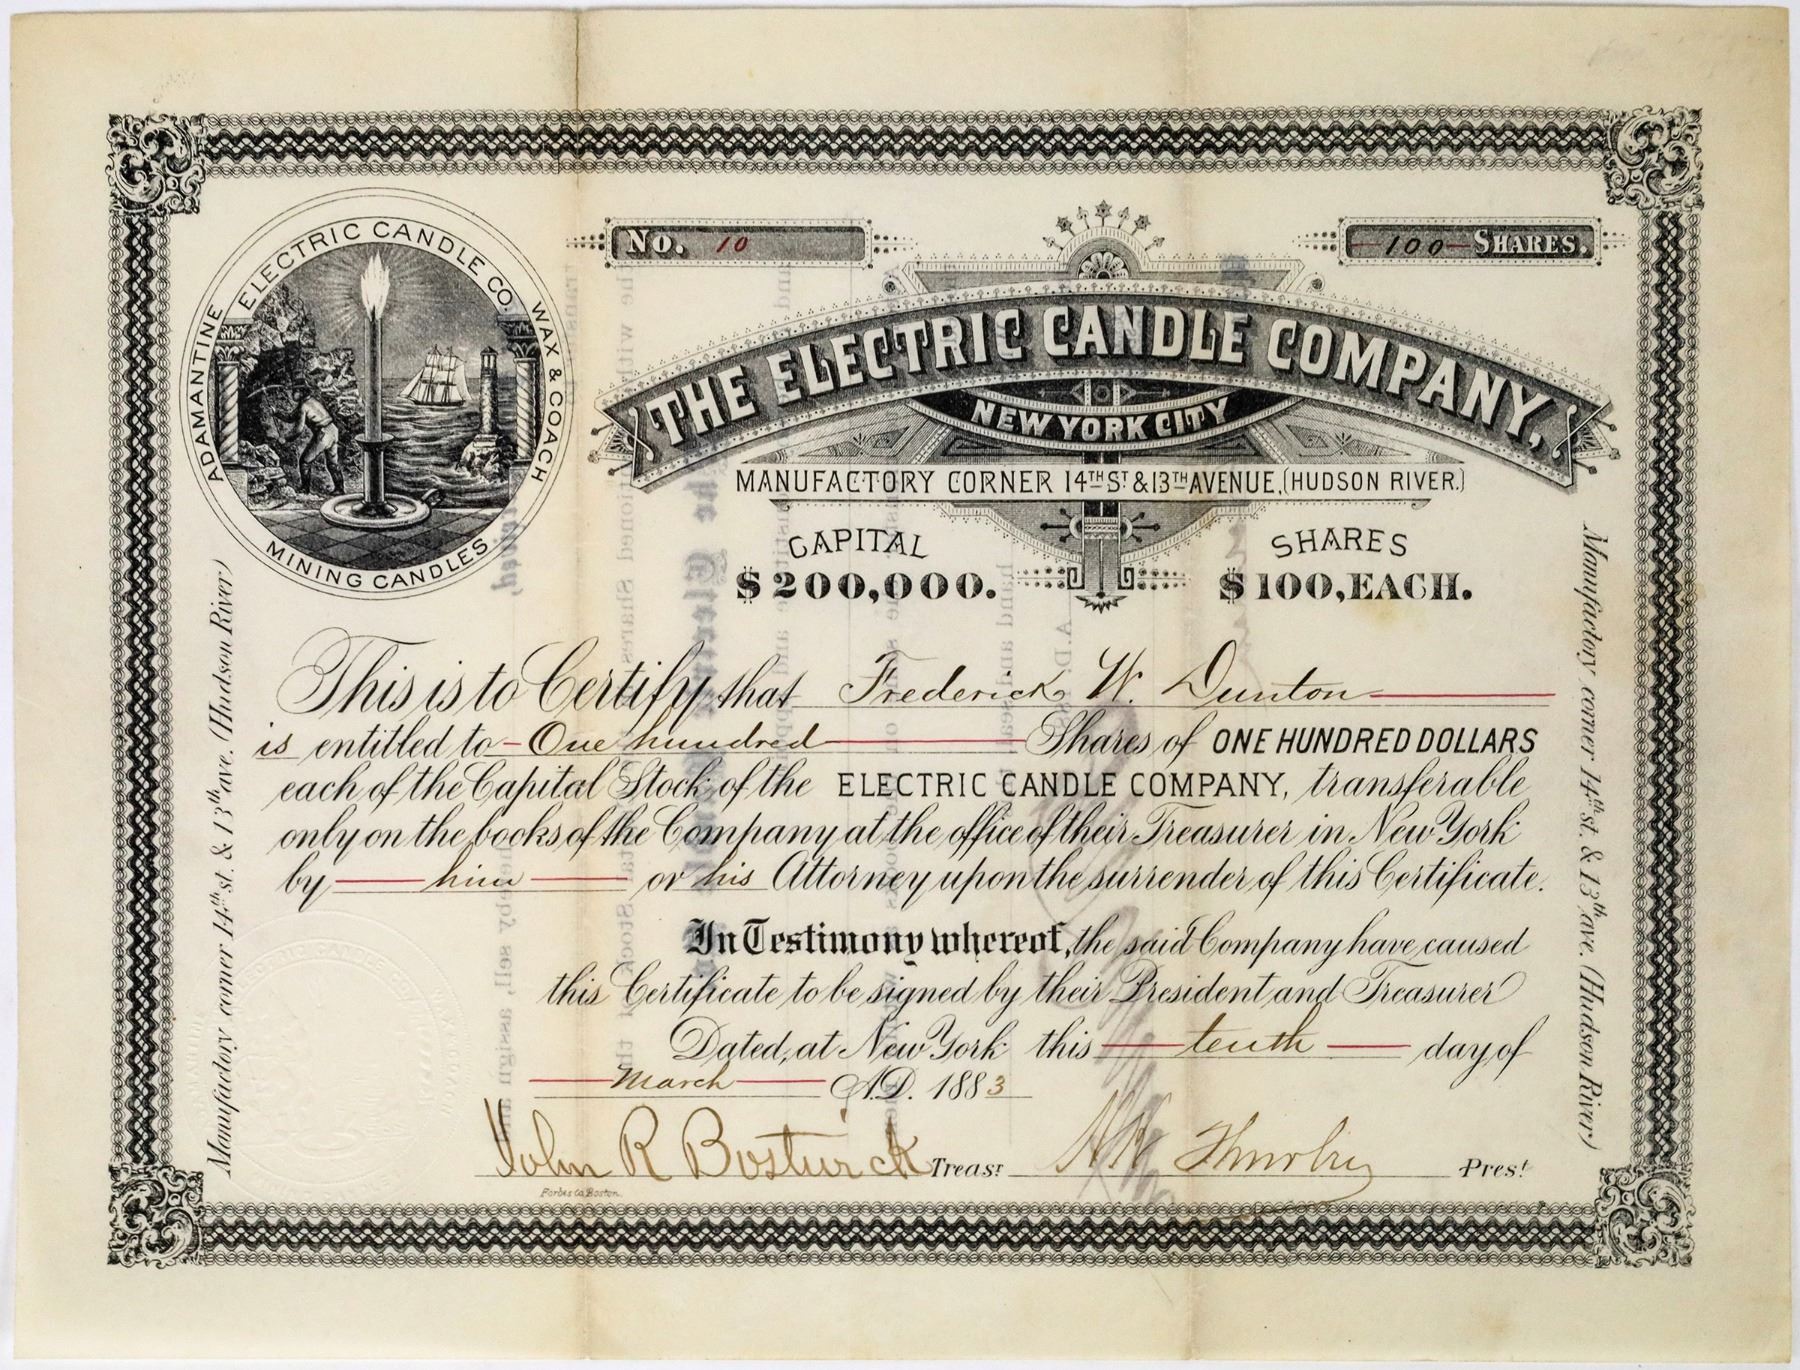 ELECTRIC CANDLE CO.
ADAMANTINE
WAX & COACH
MINING CANDLES
No. 10
100 SHARES.
THE ELECTRIC CANDLE COMPANY,
NEW YORK CITY
MANUFACTORY CORNER 14TH ST & 13TH AVENUE, (HUDSON RIVER.)
CAPITAL
$200,000.
SHARES
$100, EACH.
This is to Certify that Frederick W. Dunton
is entitled to One hundred Shares of ONE HUNDRED DOLLARS
each of the Capital Stock of the ELECTRIC CANDLE COMPANY, transferable
only on the books of the Company at the office of their Treasurer in New York
by him or his Attorney upon the surrender of this Certificate.
In Testimony whereof, the said Company have caused
this Certificate to be signed by their President and Treasurer
Dated, at New York this tenth day of
March A.D. 1883
John R Bostwick Treasr
Thurber Prest
Forbes Co. Boston.
Manufactory corner 14th st. & 13th ave. (Hudson River)
Manufactory corner 14th st. & 13th ave. (Hudson River)